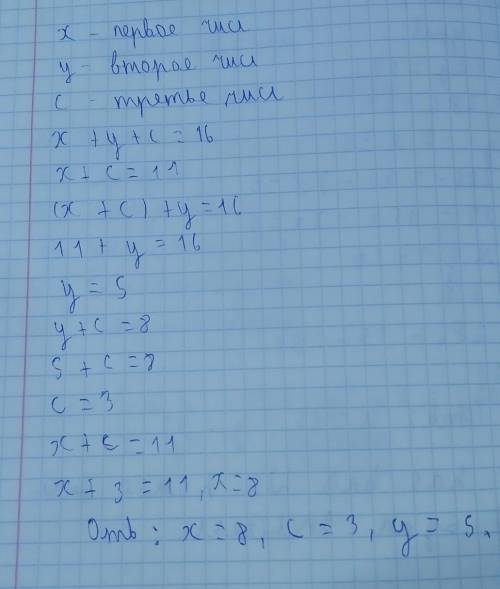 x - первое чис
y - второе чис
c - третье чис
x + y + c = 16
x + c = 11
(x + c) + y = 16
11 + y = 16
y = 5
y + c = 8
5 + c = 8
c = 3
x + c = 11
x + 3 = 11, x = 8
Отв: x = 8, c = 3, y = 5.